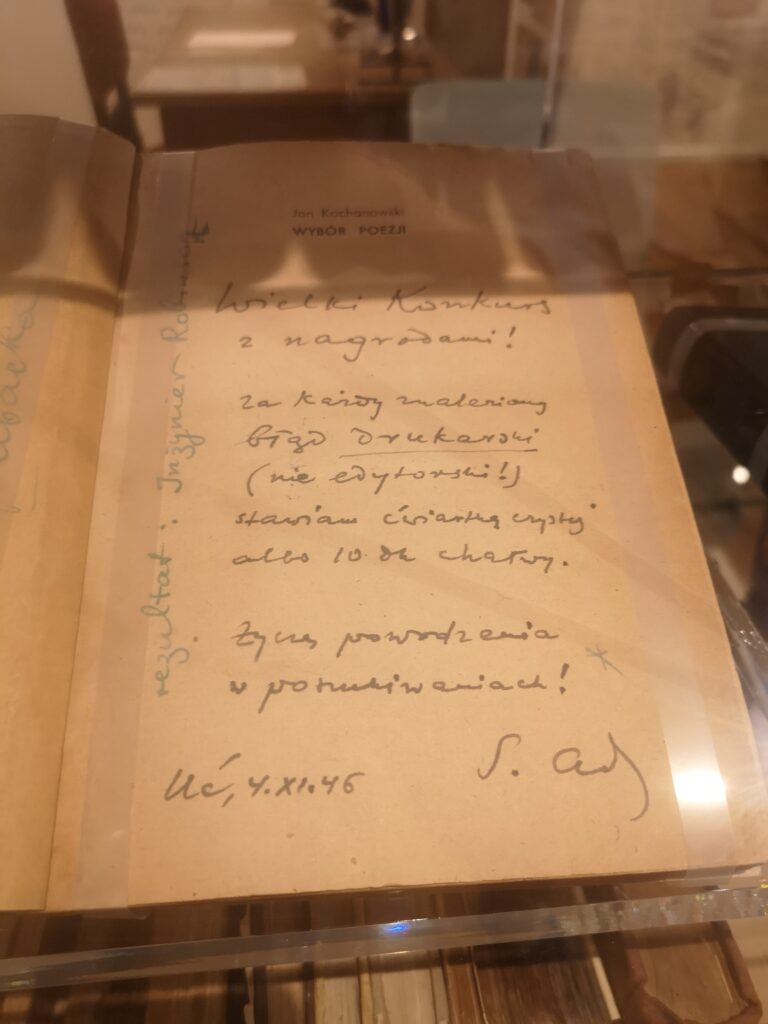 Jan Kochanowski
WYBÓR POEZJI
Wielki Konkurs
z nagrodami!
za każdy znaleziony
błąd drukarski
(nie edytorski!)
stawiam ćwiartkę czystej
albo 10 dk chałwy.
Życzę powodzenia
w poszukiwaniach!
4.XI.46
S.
rezultat: Inżynier